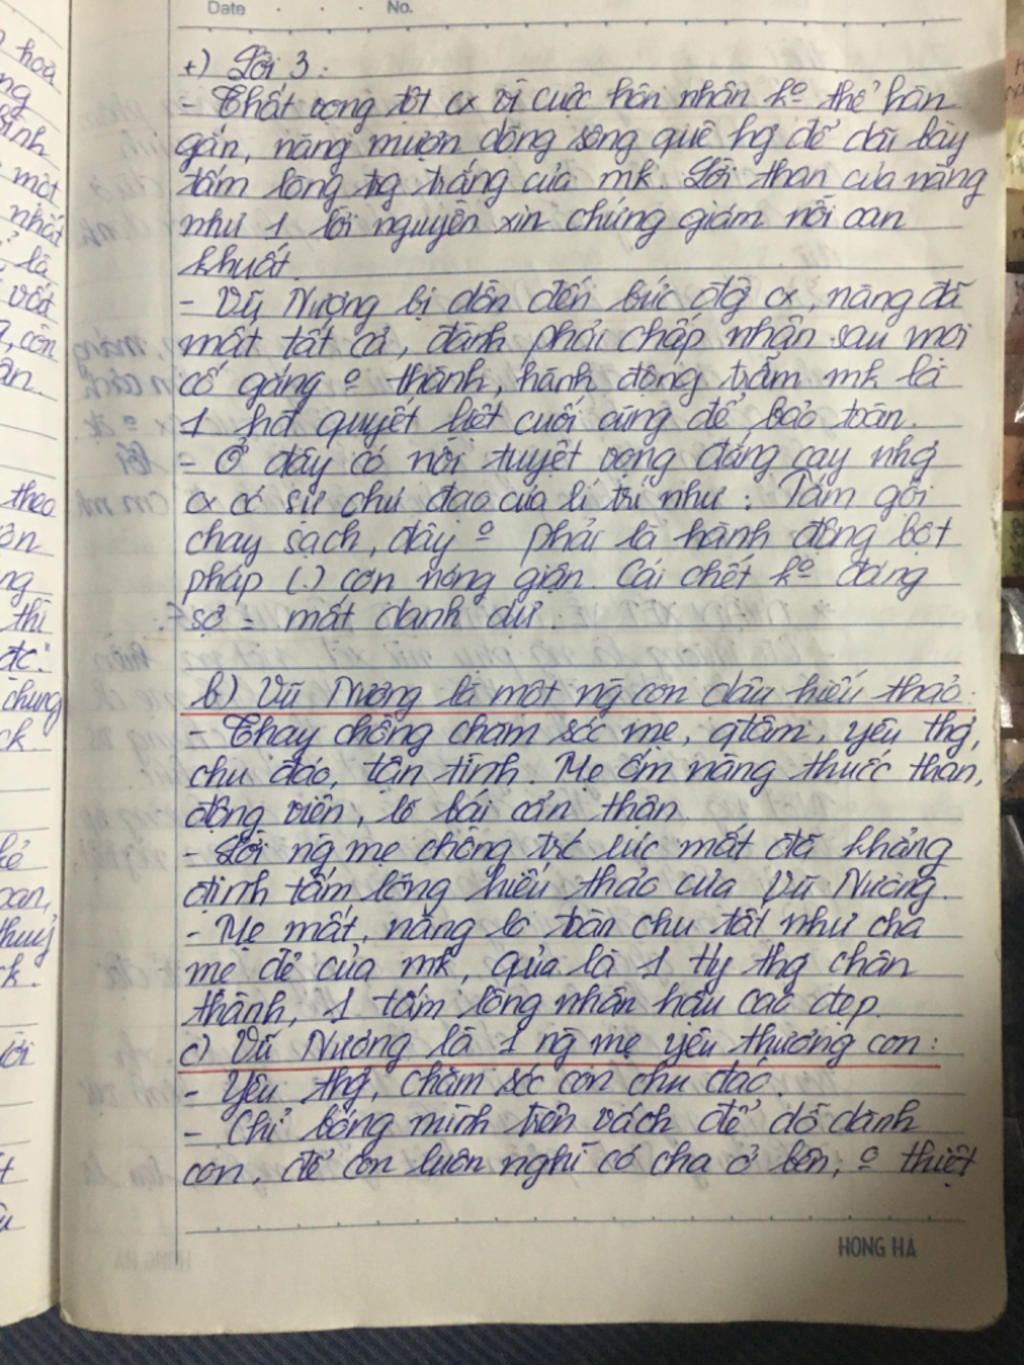 Date No.
+) Lời 3:
- Thất vọng tột cx vì cuộc hôn nhân kº thể hàn
gắn, nàng mượn dòng sông quê hg để dãi bày
tấm lòng trg trắng của mk. Lời than của nàng
như 1 lời nguyền xin chứng giám nỗi oan
khuất.
- Vũ Nương bị dồn đến bức đg cx, nàng đã
mất tất cả, đành phải chấp nhận sau mọi
cố gắng º thành, hành động trẫm mk là
1 hđ quyết liệt cuối cùng để bảo toàn.
- Ở đây có nỗi tuyệt vọng đắng cay nhg
cx có sự chỉ đạo của lí trí như: Tắm gội
chay sạch, đây º phải là hành động bột
phát (.) cơn nóng giận. Cái chết kº đáng
sợ = mất danh dự.
b) Vũ Nương là một ng con dâu hiếu thảo:
- Thay chồng chăm sóc mẹ, qtâm, yêu thg,
chu đáo, tận tình. Mẹ ốm nàng thuốc than,
động viên, lễ bái cẩn thận.
- Lời ng mẹ chồng trc lúc mất đã khẳng
định tấm lòng hiếu thảo của Vũ Nương.
- Mẹ mất, nàng lo toan chu tất như cha
mẹ đẻ của mk, qủa là 1 ty thg chân
thành, 1 tấm lòng nhân hậu cao đẹp.
c) Vũ Nương là 1 ng mẹ yêu thương con:
- Yêu thg, chăm sóc con chu đáo.
- Chỉ bóng mình trên vách để dỗ dành
con, để con luôn nghĩ có cha ở bên, º thiệt
HONG HA